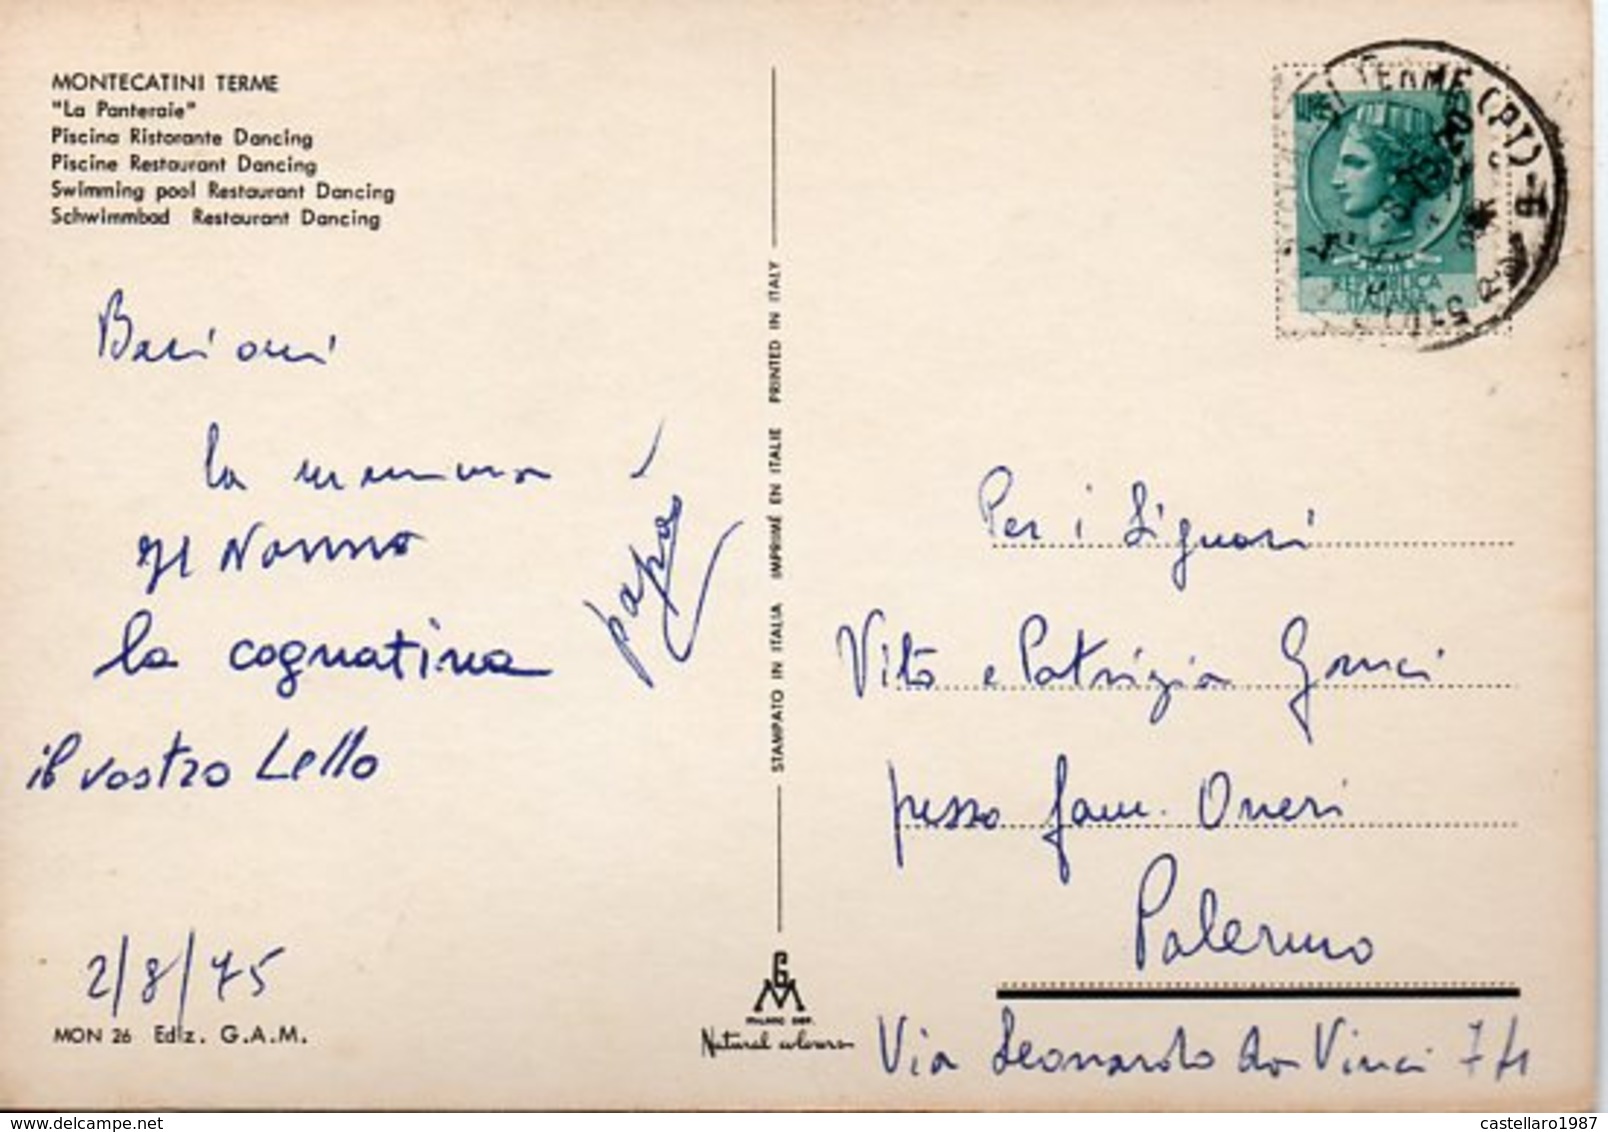 MONTECATINI TERME
"La Panteraie"
Piscina Ristorante Dancing
Piscine Restaurant Dancing
Swimming pool Restaurant Dancing
Schwimmbad Restaurant Dancing
Baci
la mamma
Il Nonno
la cognatina
papà
il vostro Lello
2/8/75
MON 26 Ediz. G.A.M.
STAMPATO IN ITALIA IMPRIMÉ EN ITALIE PRINTED IN ITALY
Natural colours
TERME (PT)
REPUBBLICA
ITALIANA
Per i Signori
Vito e Patrizia
presso fam. Oneri
Palermo
Via Leonardo da Vinci 7/
castellaro1987